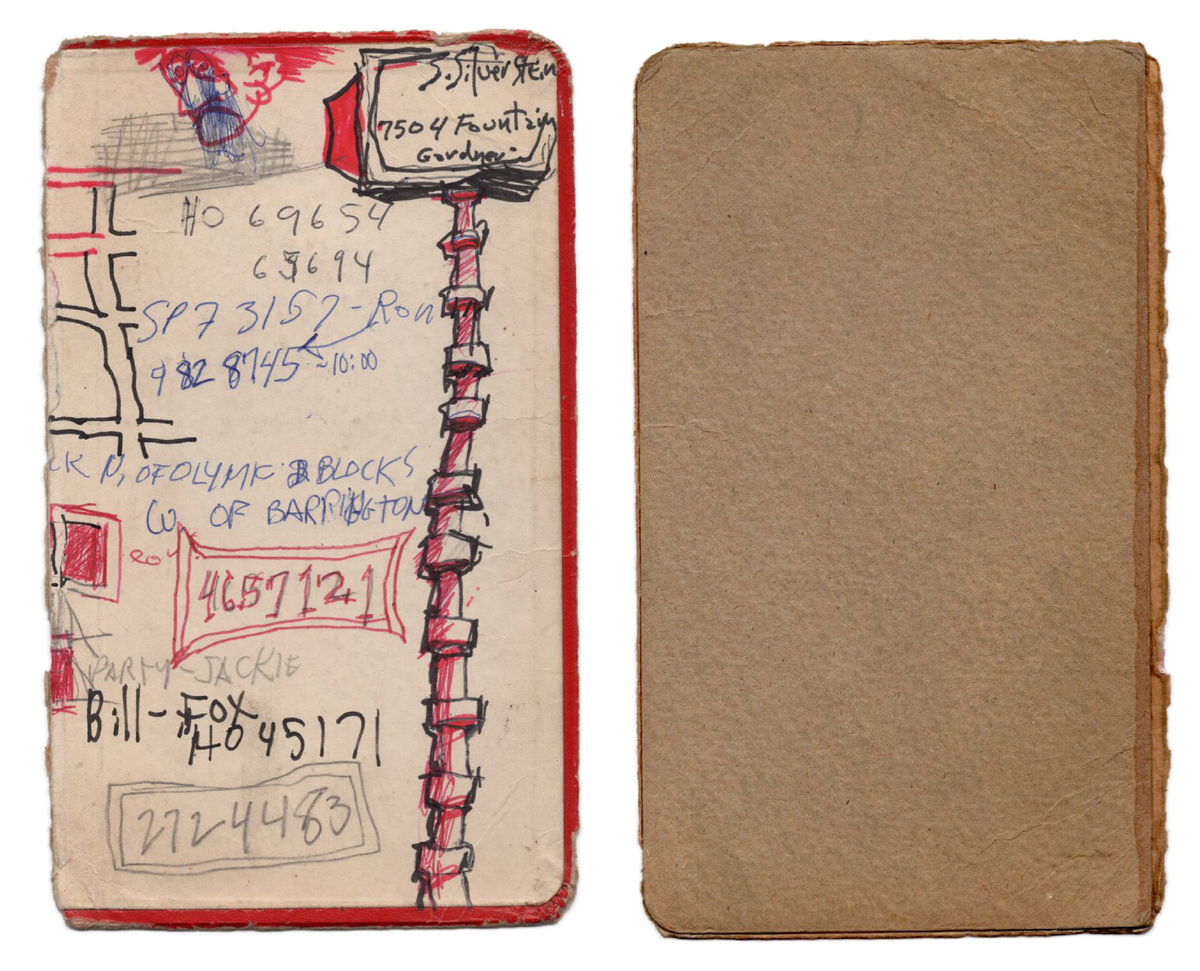 S. Silverstein
7504 Fountain
Gardner
HO 69654
65694
SP7 3157 - Ron
982 8745 - 10:00
CK N, OF OLYMIC 3 BLOCKS
W OF BARRINGTON
ROY
4657121
PARTY - JACKIE
Bill - FOX
HO 45171
2724483